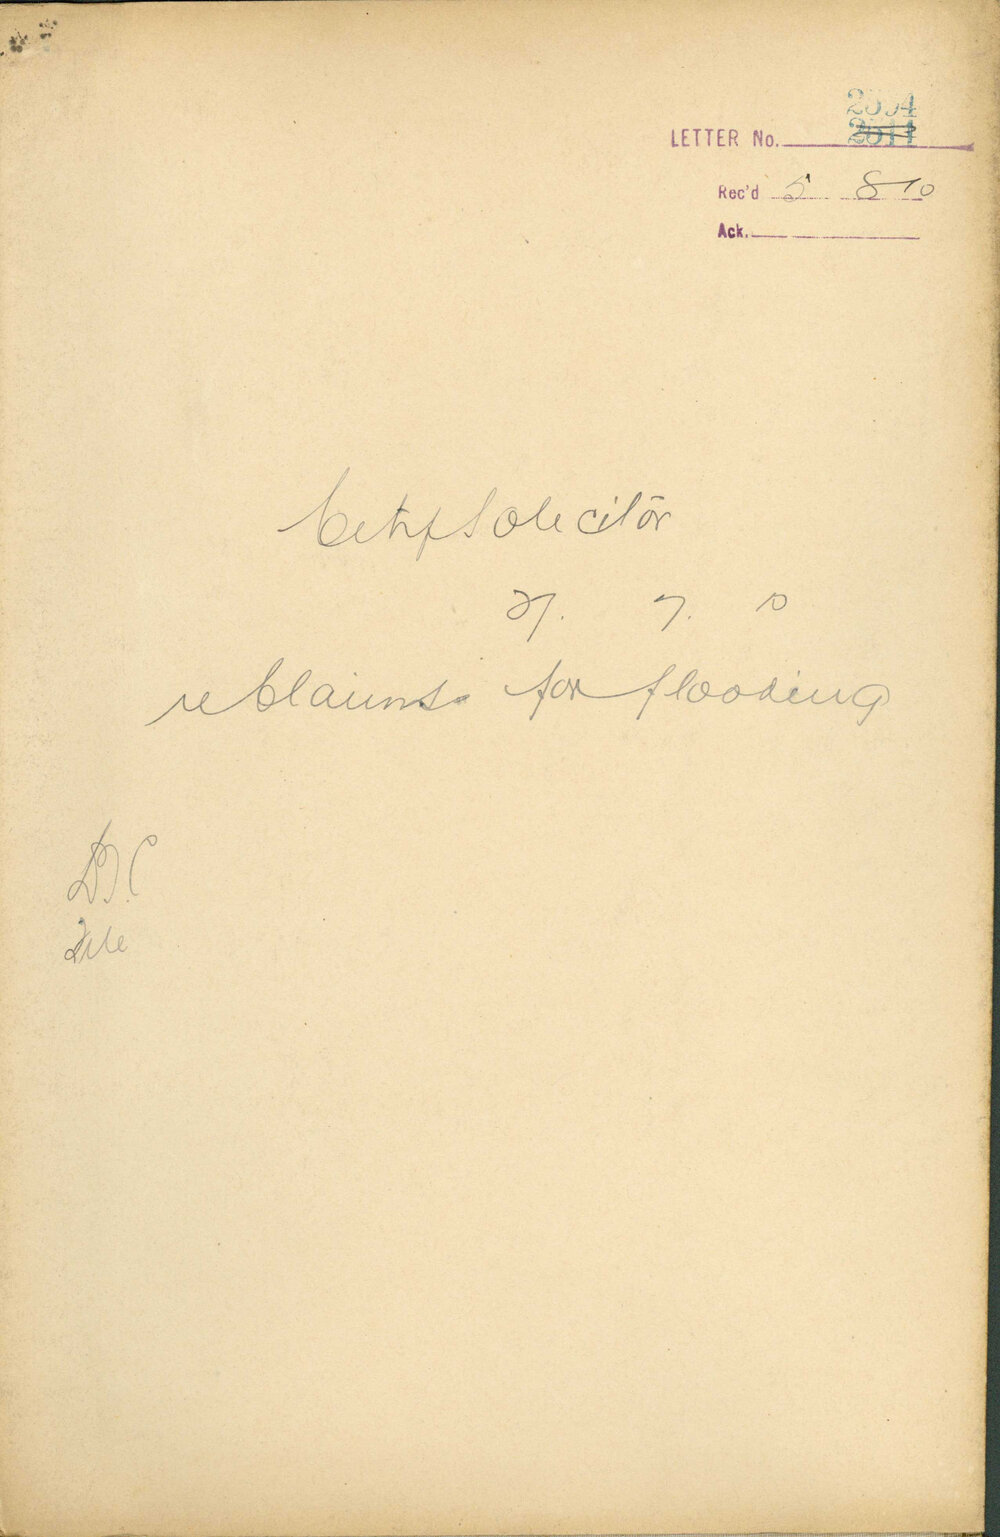 2554
LETTER No. 2511
Rec'd 5 8 10
Ack.
City Solicitor
27. 7. 10
re Claims for flooding
File